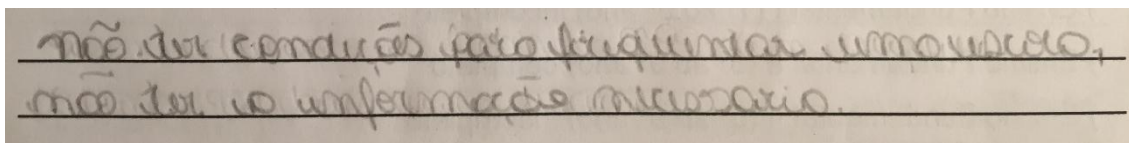 não ter condições para frequentar uma escola,
não ter a informação necessário.